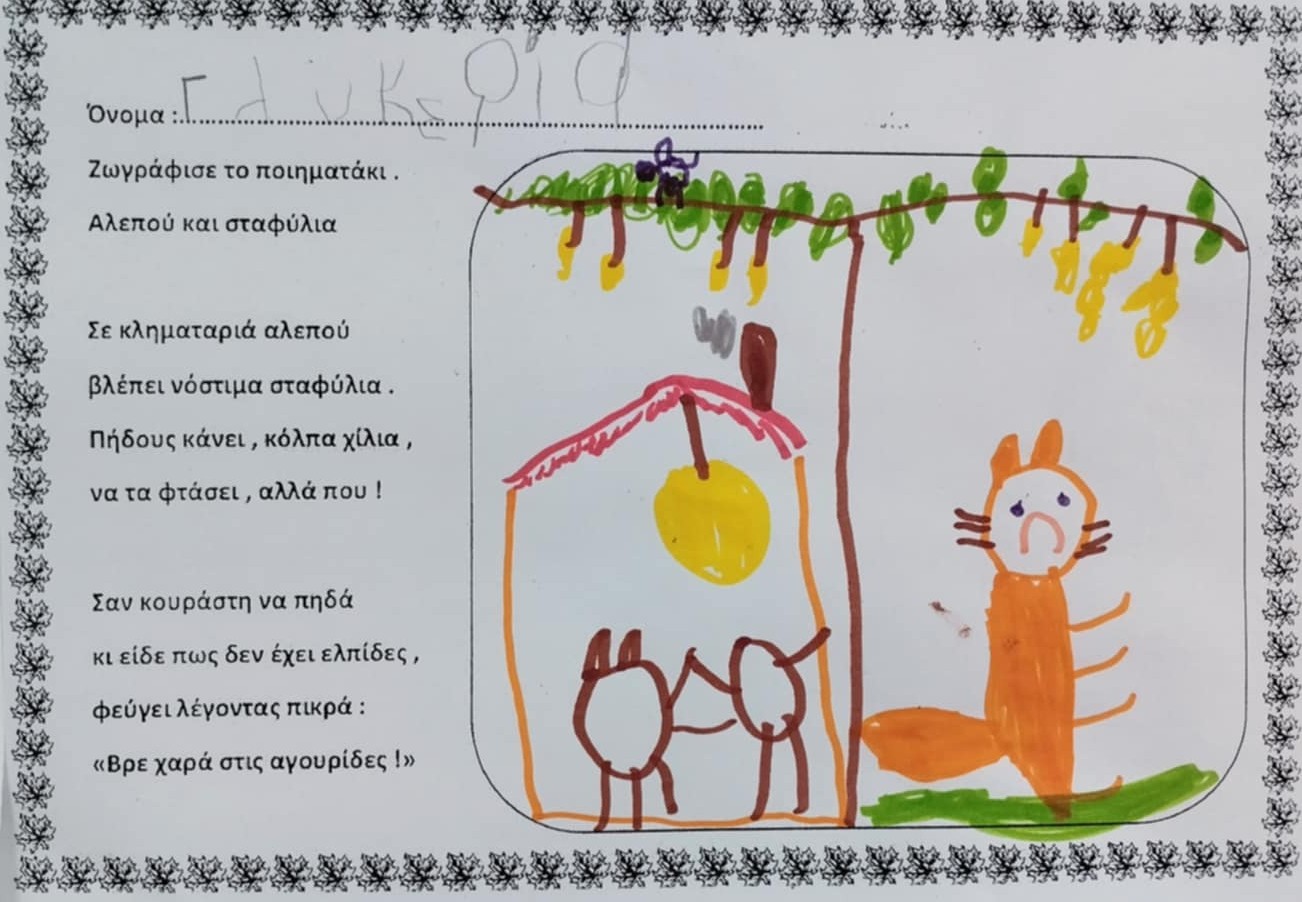 Όνομα :Γλυκερία
Ζωγράφισε το ποιηματάκι .
Αλεπού και σταφύλια
Σε κληματαριά αλεπού
βλέπει νόστιμα σταφύλια .
Πήδους κάνει , κόλπα χίλια ,
να τα φτάσει , αλλά που !
Σαν κουράστη να πηδά
κι είδε πως δεν έχει ελπίδες ,
φεύγει λέγοντας πικρά :
«Βρε χαρά στις αγουρίδες !»